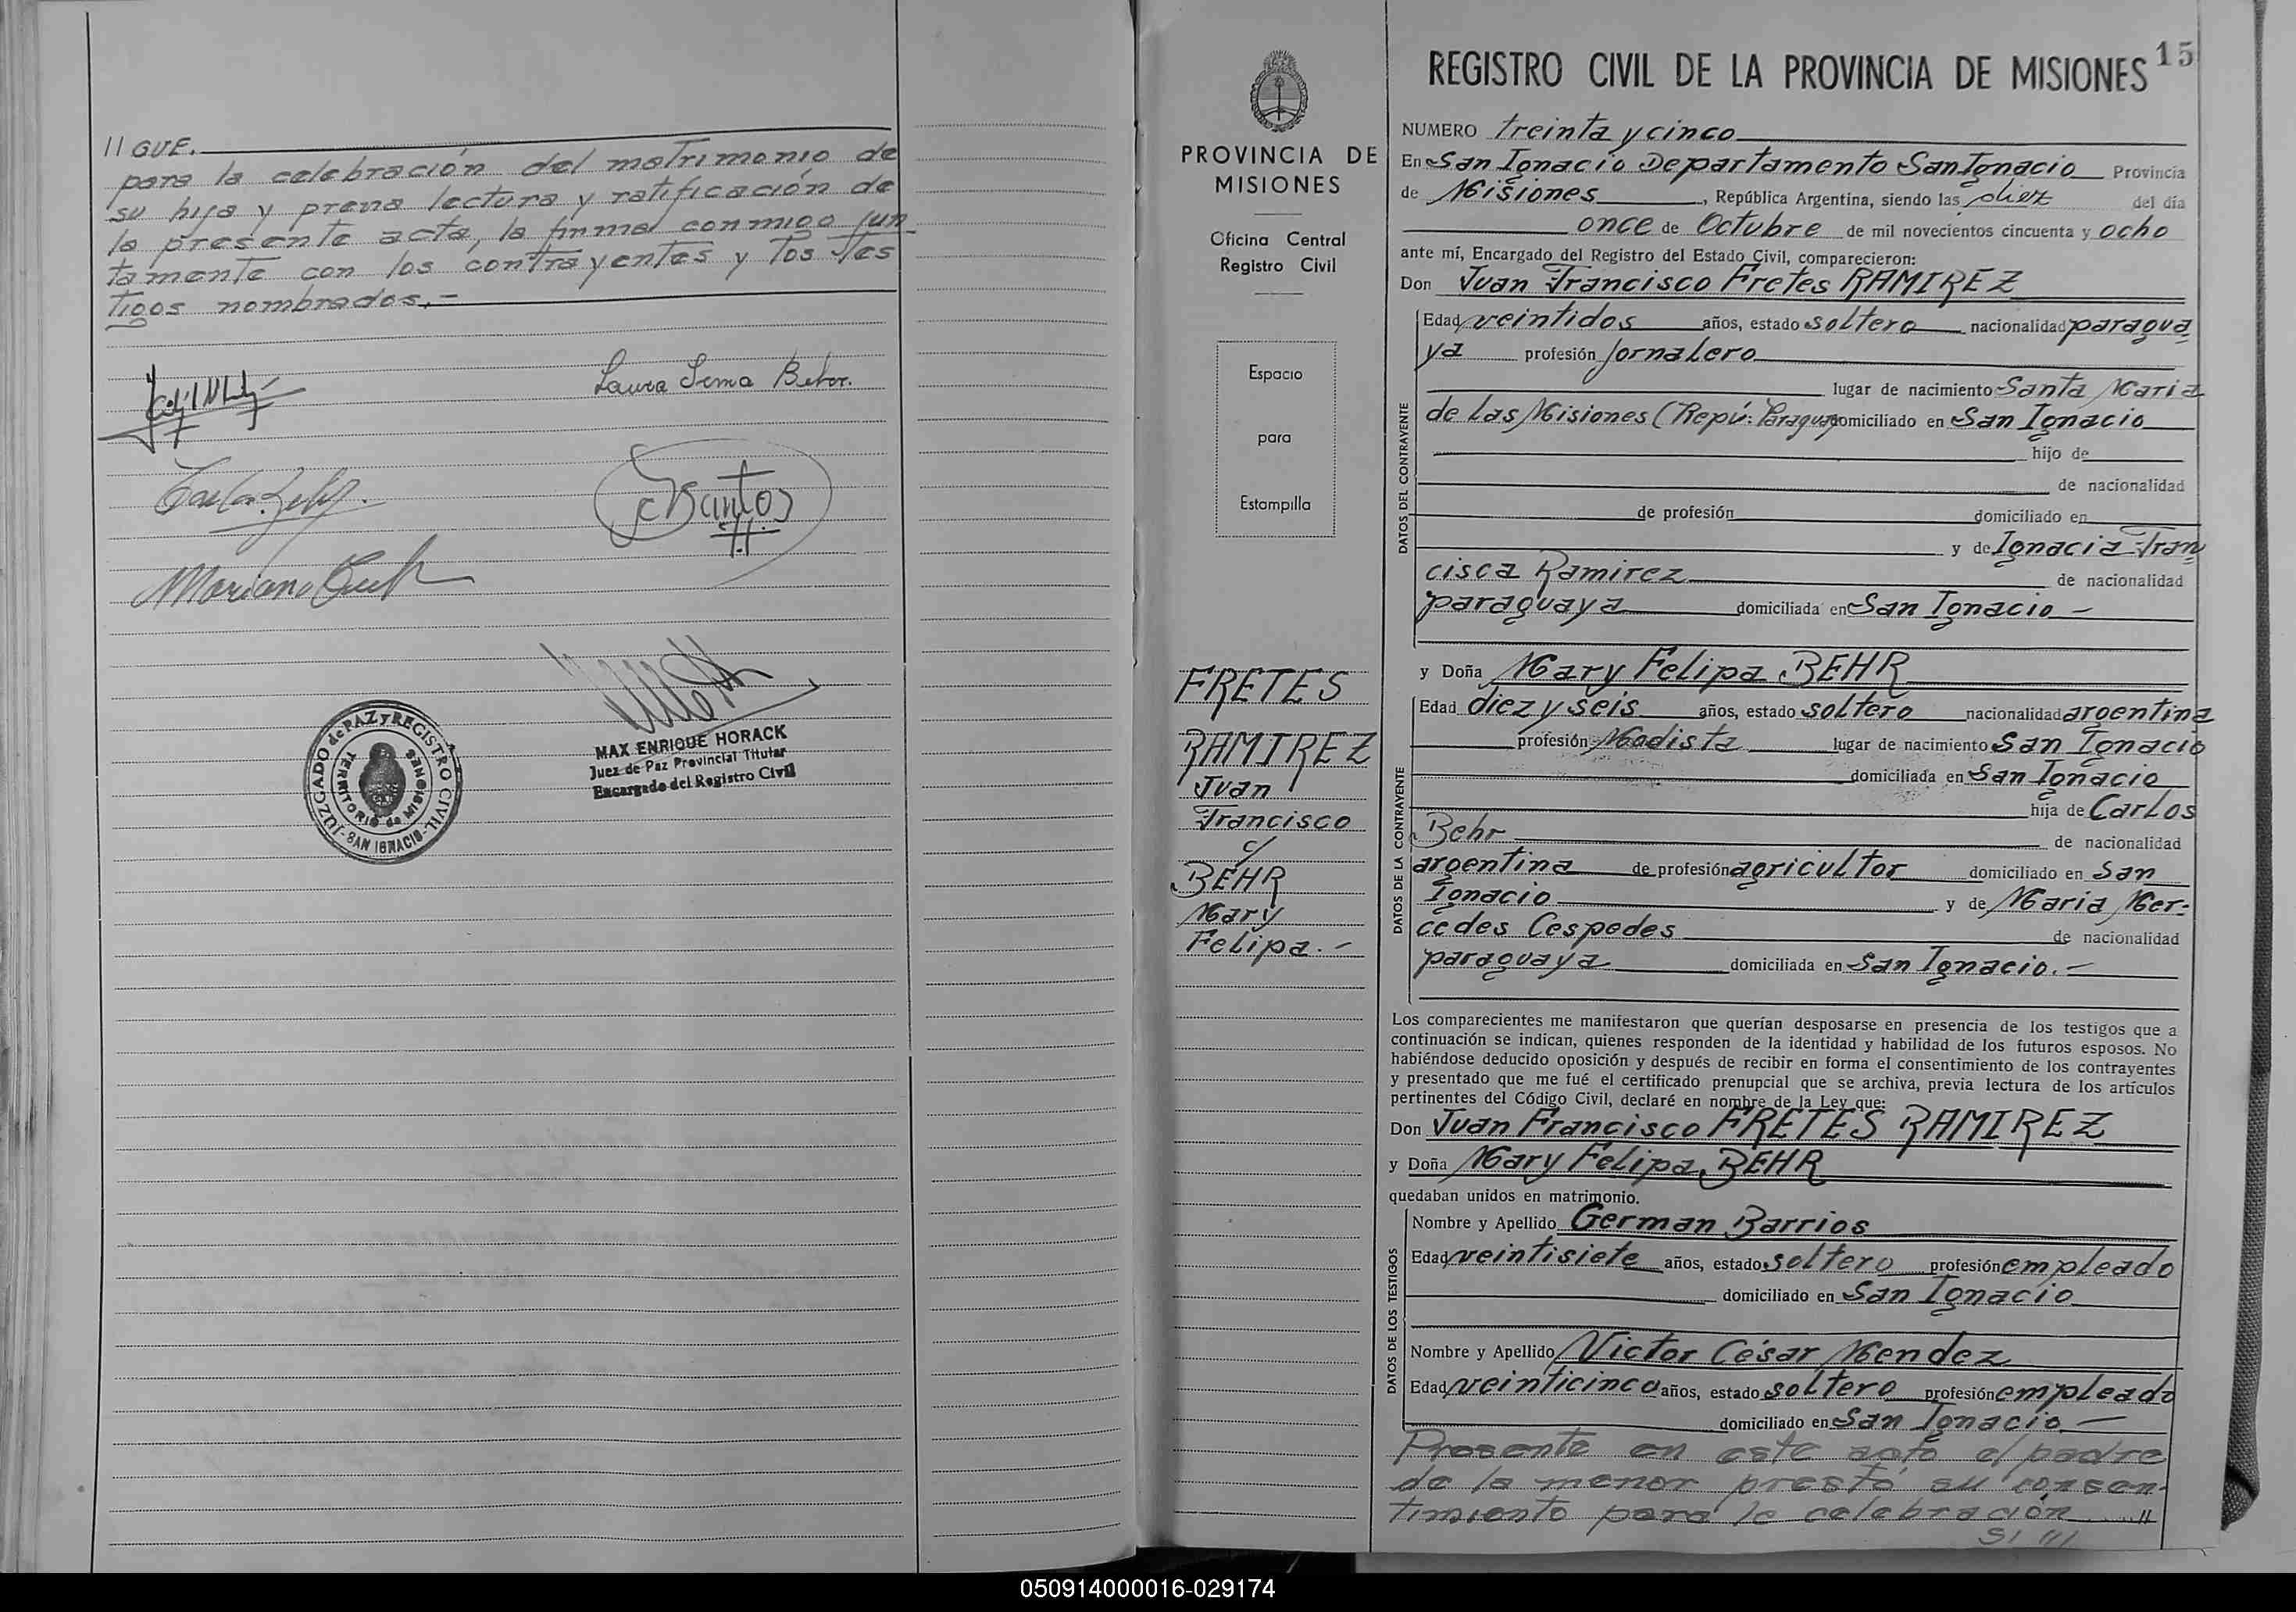 // GUE.
para la celebración del matrimonio de
su hija y previa lectura y ratificación de
la presente acta, la firma conmigo jun
tamente con los contrayentes y los tes
tigos nombrados.-
Laura Irma
Santos
Mariano
JUZGADO de PAZ y REGISTRO CIVIL - SAN IGNACIO -
TERRITORIO de MISIONES
MAX ENRIQUE HORACK
Juez de Paz Provincial Titular
Encargado del Registro Civil
PROVINCIA DE
MISIONES
Oficina Central
Registro Civil
Espacio
para
Estampilla
FRETES
RAMIREZ
Juan
Francisco
c/
BEHR
Mary
Felipa.-
REGISTRO CIVIL DE LA PROVINCIA DE MISIONES 15
NUMERO treinta y cinco
En San Ignacio Departamento San Ignacio Provincia
de Misiones, República Argentina, siendo las diez del día
once de Octubre de mil novecientos cincuenta y ocho
ante mí, Encargado del Registro del Estado Civil, comparecieron:
Don Juan Francisco Fretes RAMIREZ
DATOS DEL CONTRAYENTE
Edad veintidos años, estado soltero nacionalidad paragua
ya profesión Jornalero
lugar de nacimiento Santa Maria
de las Misiones (Repú: Paraguay domiciliado en San Ignacio
hijo de
de nacionalidad
de profesión domiciliado en
y de Ignacia Fran
cisca Ramirez de nacionalidad
paraguaya domiciliada en San Ignacio -
y Doña Mary Felipa BEHR
DATOS DE LA CONTRAYENTE
Edad diez y seis años, estado soltero nacionalidad argentina
profesión Modista lugar de nacimiento San Ignacio
domiciliada en San Ignacio
hija de Carlos
Behr de nacionalidad
argentina de profesión agricultor domiciliado en San
Ignacio y de Maria Mer=
cedes Cespedes de nacionalidad
paraguaya domiciliada en San Ignacio.-
Los comparecientes me manifestaron que querían desposarse en presencia de los testigos que a
continuación se indican, quienes responden de la identidad y habilidad de los futuros esposos. No
habiéndose deducido oposición y después de recibir en forma el consentimiento de los contrayentes
y presentado que me fué el certificado prenupcial que se archiva, previa lectura de los artículos
pertinentes del Código Civil, declaré en nombre de la Ley que:
Don Juan Francisco FRETES RAMIREZ
y Doña Mary Felipa BEHR
quedaban unidos en matrimonio.
DATOS DE LOS TESTIGOS
Nombre y Apellido German Barrios
Edad veintisiete años, estado soltero profesión empleado
domiciliado en San Ignacio
Nombre y Apellido Victor César Mendez
Edad veinticinco años, estado soltero profesión empleado
domiciliado en San Ignacio -
Presente en este acto el padre
de la menor prestó su consen-
timiento para la celebración //
050914000016-029174